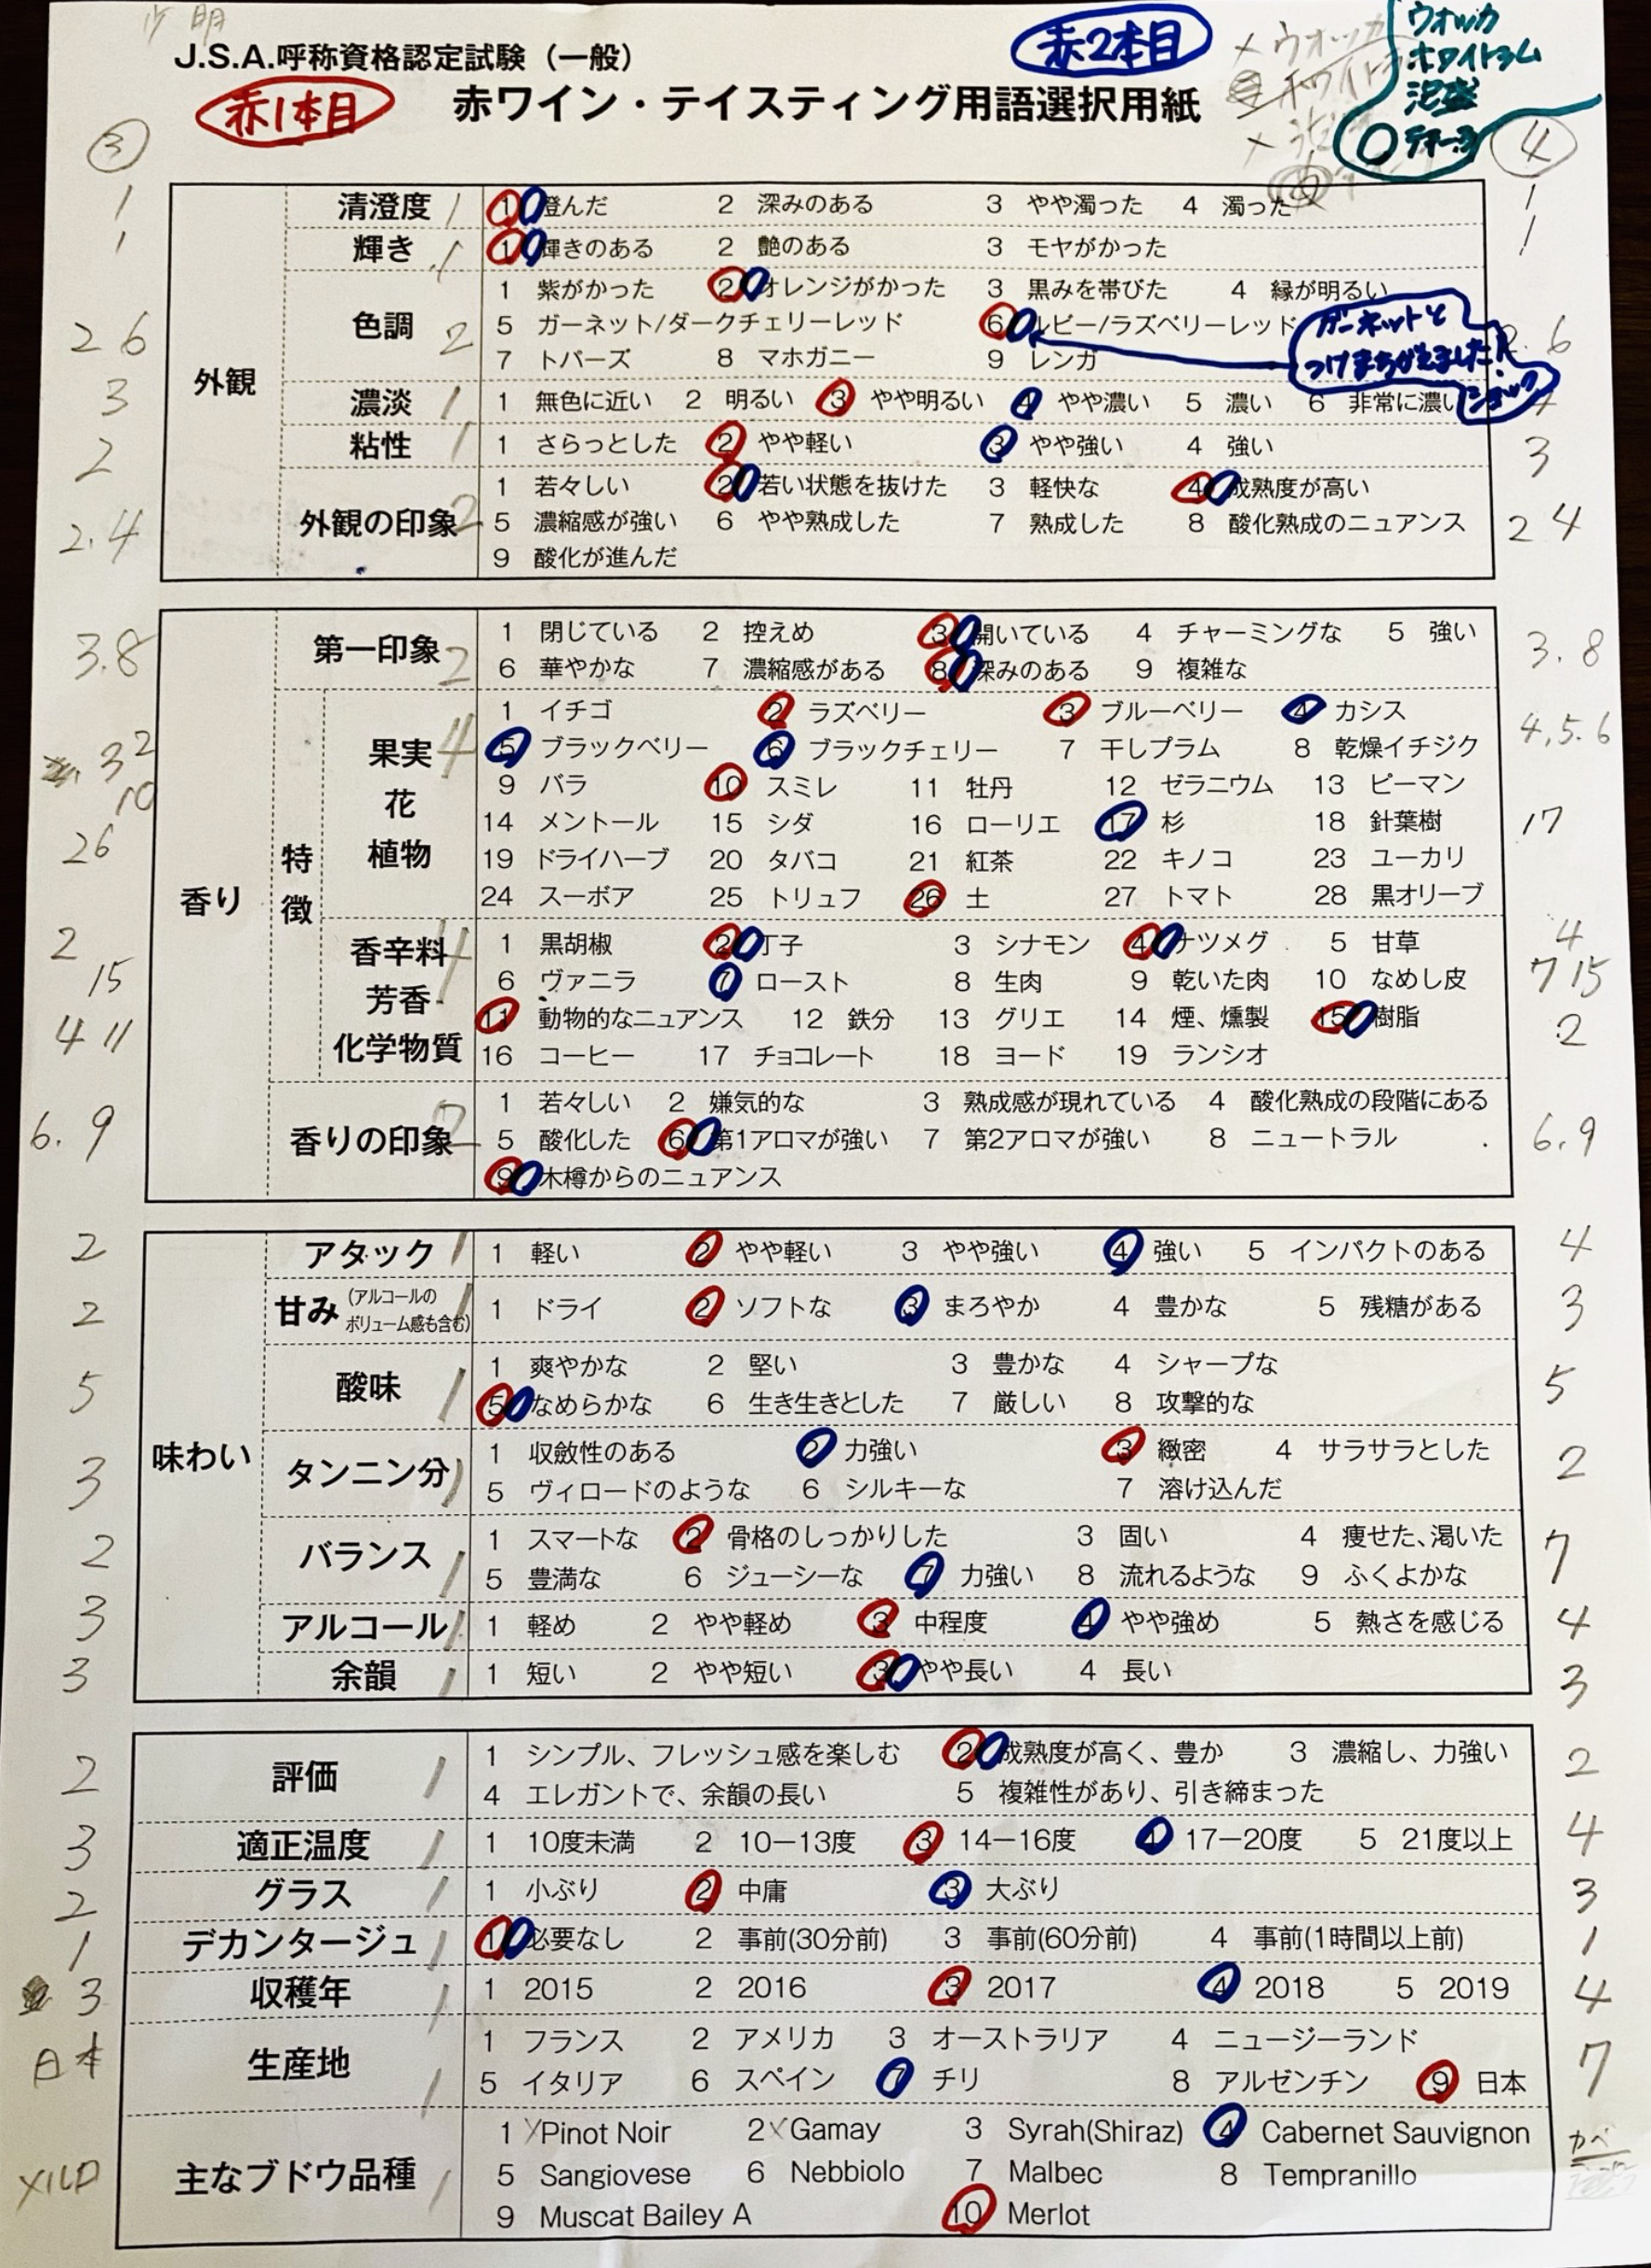 J.S.A.呼称資格認定試験（一般）
赤1本目
赤2本目
赤ワイン・テイスティング用語選択用紙
×ウオッカ
ウオッカ
ホワイトラム
泡盛
③
④
外観
清澄度 1 澄んだ 2 深みのある 3 やや濁った 4 濁った
輝き 1 輝きのある 2 艶のある 3 モヤがかった
色調 1 紫がかった 2 オレンジがかった 3 黒みを帯びた 4 縁が明るい
5 ガーネット/ダークチェリーレッド 6 ルビー/ラズベリーレッド
7 トパーズ 8 マホガニー 9 レンガ
ガーネットと
つけまちがえました！
ショック
濃淡 1 無色に近い 2 明るい 3 やや明るい 4 やや濃い 5 濃い 6 非常に濃い
粘性 1 さらっとした 2 やや軽い 3 やや強い 4 強い
外観の印象 1 若々しい 2 若い状態を抜けた 3 軽快な 4 成熟度が高い
5 濃縮感が強い 6 やや熟成した 7 熟成した 8 酸化熟成のニュアンス
9 酸化が進んだ
香り
第一印象 1 閉じている 2 控えめ 3 開いている 4 チャーミングな 5 強い
6 華やかな 7 濃縮感がある 8 深みのある 9 複雑な
特徴
果実 花 植物
1 イチゴ 2 ラズベリー 3 ブルーベリー 4 カシス
5 ブラックベリー 6 ブラックチェリー 7 干しプラム 8 乾燥イチジク
9 バラ 10 スミレ 11 牡丹 12 ゼラニウム 13 ピーマン
14 メントール 15 シダ 16 ローリエ 17 杉 18 針葉樹
19 ドライハーブ 20 タバコ 21 紅茶 22 キノコ 23 ユーカリ
24 スーボア 25 トリュフ 26 土 27 トマト 28 黒オリーブ
香辛料 芳香 化学物質
1 黒胡椒 2 丁子 3 シナモン 4 ナツメグ 5 甘草
6 ヴァニラ 7 ロースト 8 生肉 9 乾いた肉 10 なめし皮
11 動物的なニュアンス 12 鉄分 13 グリエ 14 煙、燻製 15 樹脂
16 コーヒー 17 チョコレート 18 ヨード 19 ランシオ
香りの印象 1 若々しい 2 嫌気的な 3 熟成感が現れている 4 酸化熟成の段階にある
5 酸化した 6 第1アロマが強い 7 第2アロマが強い 8 ニュートラル
9 木樽からのニュアンス
味わい
アタック 1 軽い 2 やや軽い 3 やや強い 4 強い 5 インパクトのある
甘み (アルコールのボリューム感も含む) 1 ドライ 2 ソフトな 3 まろやか 4 豊かな 5 残糖がある
酸味 1 爽やかな 2 堅い 3 豊かな 4 シャープな
5 なめらかな 6 生き生きとした 7 厳しい 8 攻撃的な
タンニン分 1 収斂性のある 2 力強い 3 緻密 4 サラサラとした
5 ヴィロードのような 6 シルキーな 7 溶け込んだ
バランス 1 スマートな 2 骨格のしっかりした 3 固い 4 痩せた、渇いた
5 豊満な 6 ジューシーな 7 力強い 8 流れるような 9 ふくよかな
アルコール 1 軽め 2 やや軽め 3 中程度 4 やや強め 5 熱さを感じる
余韻 1 短い 2 やや短い 3 やや長い 4 長い
評価 1 シンプル、フレッシュ感を楽しむ 2 成熟度が高く、豊か 3 濃縮し、力強い
4 エレガントで、余韻の長い 5 複雑性があり、引き締まった
適正温度 1 10度未満 2 10－13度 3 14－16度 4 17－20度 5 21度以上
グラス 1 小ぶり 2 中庸 3 大ぶり
デカンタージュ 1 必要なし 2 事前(30分前) 3 事前(60分前) 4 事前(1時間以上前)
収穫年 1 2015 2 2016 3 2017 4 2018 5 2019
生産地 1 フランス 2 アメリカ 3 オーストラリア 4 ニュージーランド
5 イタリア 6 スペイン 7 チリ 8 アルゼンチン 9 日本
主なブドウ品種 1 Pinot Noir 2 Gamay 3 Syrah(Shiraz) 4 Cabernet Sauvignon
5 Sangiovese 6 Nebbiolo 7 Malbec 8 Tempranillo
9 Muscat Bailey A 10 Merlot
1
1
2 6
3
2
2.4
3.8
3 2
10
26
2
15
4 11
6. 9
2
2
5
3
2
3
3
2
3
2
1
3
日本
メルロ
1
1
6
3
2 4
3. 8
4,5.6
17
4
7 15
2
6.9
4
3
5
2
7
4
3
2
4
3
1
4
7
カベ